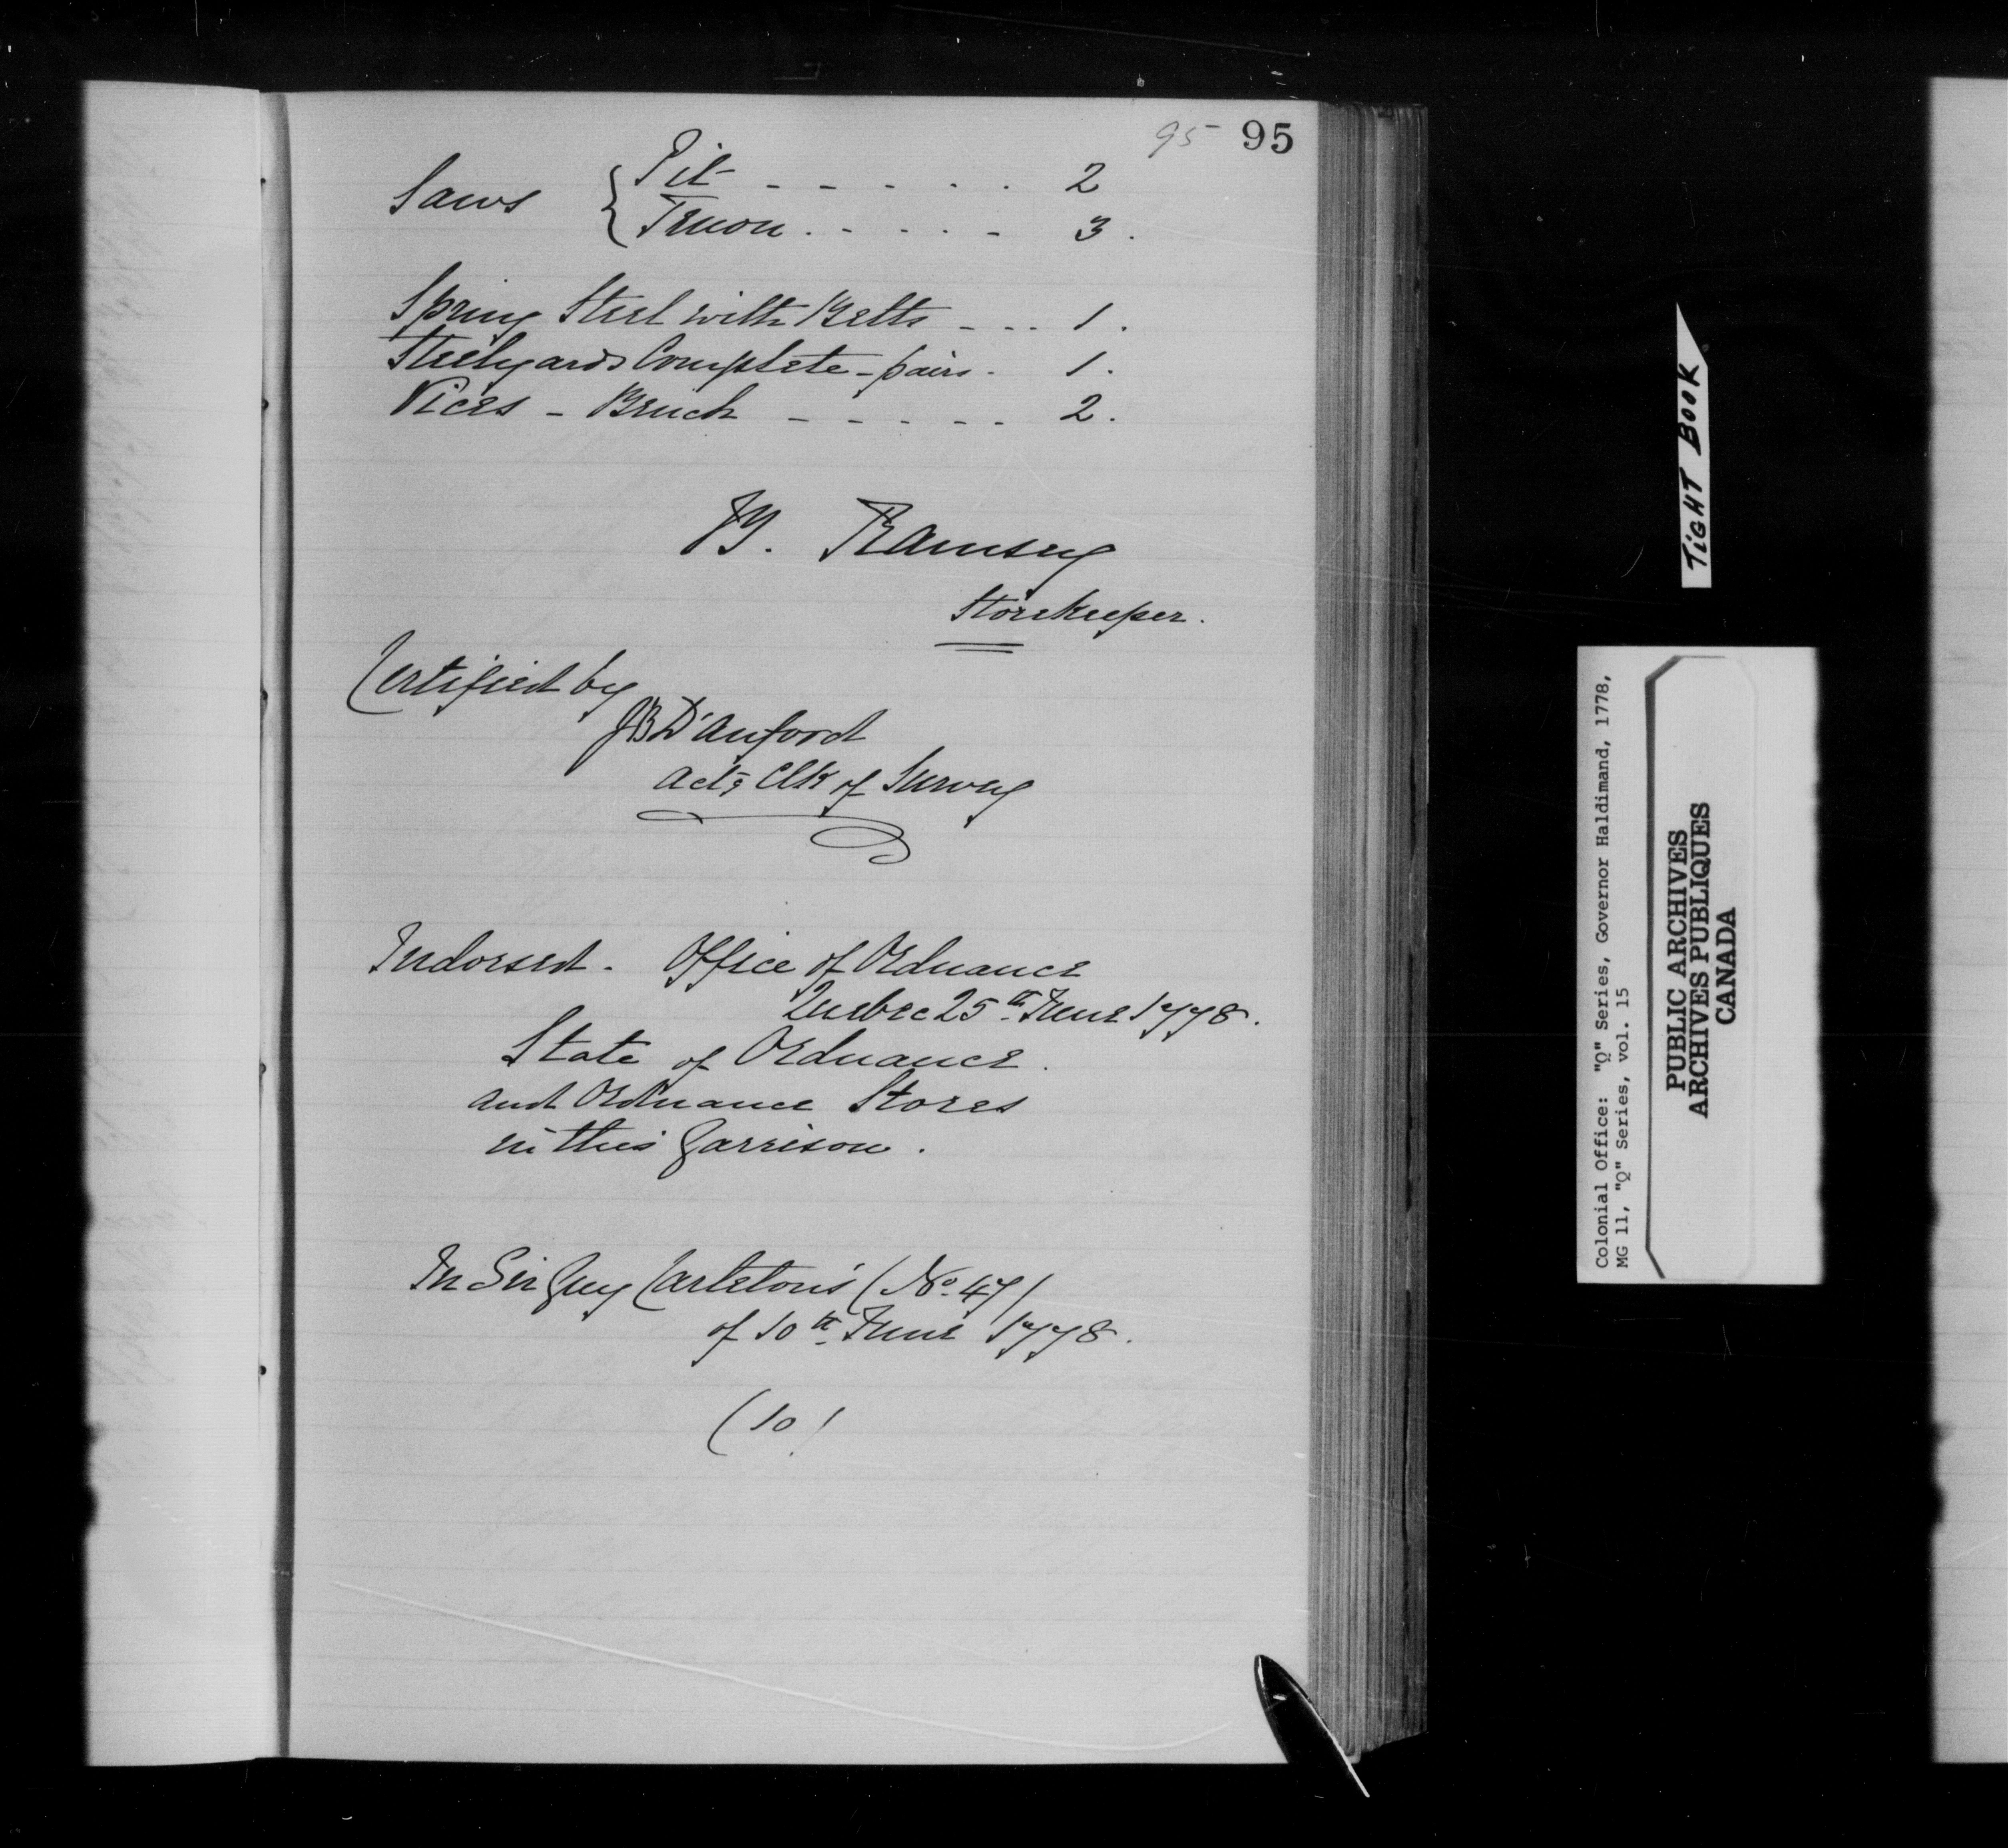 95 95
Saws { Pit - - - - - - 2
Tenon . - - - - 3.
Spring Steel with Belts - - - 1.
Steelyards Complete - pairs - 1.
Vices - Bench - - - - - 2.
Ramsey
Storekeeper.
Certified by
JB D'anford
actg Clk of Survey
Indorsed - Office of Ordnance
Quebec 25th June 1778.
State of Ordnance.
and Ordnance Stores
in this Garrison.
In Sir Guy Carleton's (No. 47)
of 10th June 1778.
(10)
TIGHT BOOK
Colonial Office: "Q" Series, Governor Haldimand, 1778,
MG 11, "Q" Series, vol. 15
PUBLIC ARCHIVES
ARCHIVES PUBLIQUES
CANADA